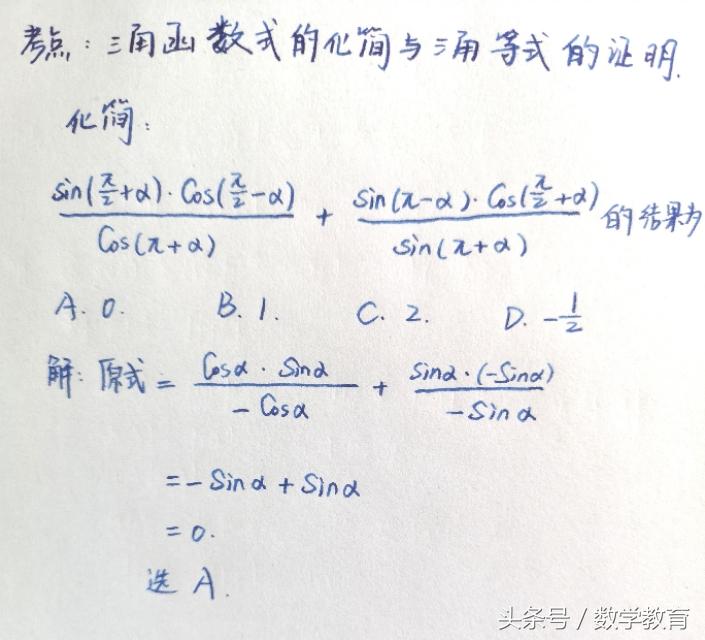 考点：三角函数式的化简与三角等式的证明.
化简：
sin(π/2+α)·Cos(π/2-α)/Cos(π+α) + Sin(π-α)·Cos(π/2+α)/sin(π+α) 的结果为
A. 0. B. 1. C. 2. D. -1/2
解：原式 = Cosα·Sinα/-Cosα + Sinα·(-Sinα)/-Sinα
=-Sinα+Sinα
=0.
选 A.
头条号 / 数学教育